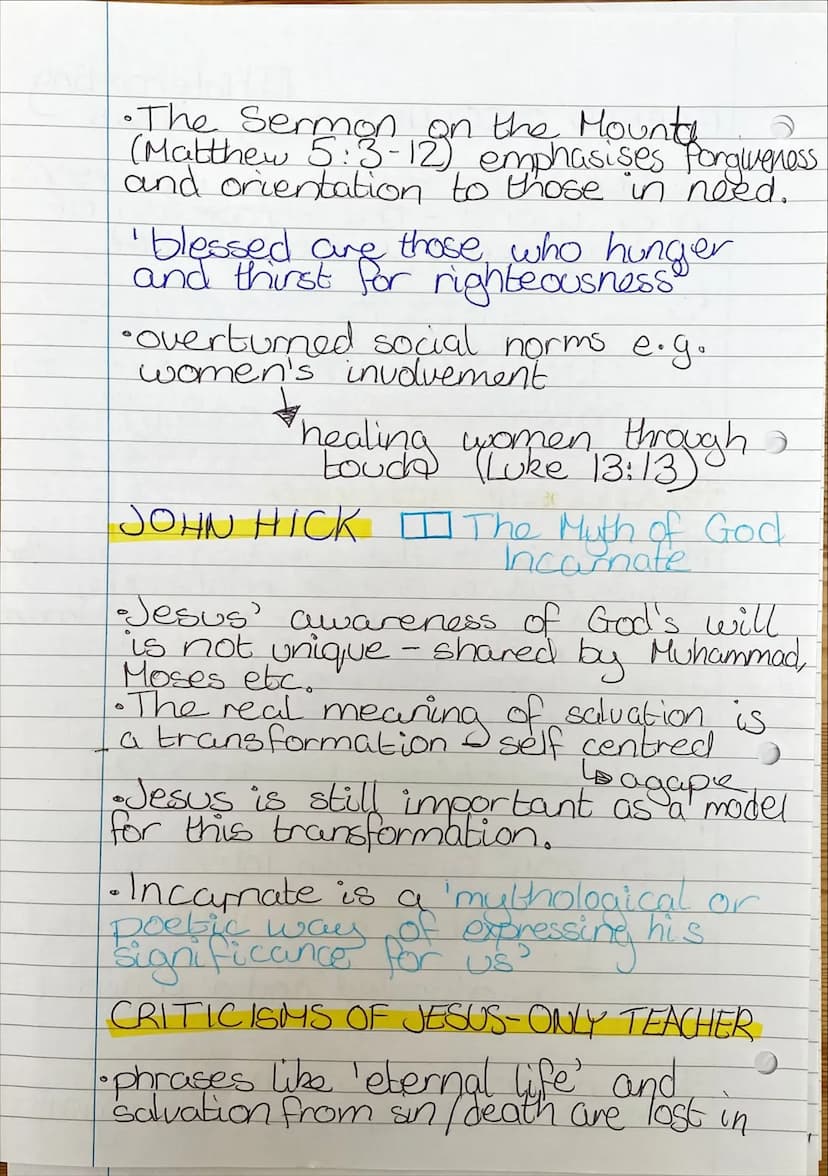 •The Sermon on the Mount
(Matthew 5:3-12) emphasises forgiveness
and orientation to those in need.
'blessed are those who hunger
and thirst for righteousness'
•overturned social norms e.g.
women's involvement
↓
healing women through
touch (Luke 13:13)
JOHN HICK The Myth of God
Incarnate
•Jesus' awareness of God's will
is not unique - shared by Muhammad,
Moses etc.
•The real meaning of salvation is
a transformation → self centred
↳ agape
•Jesus is still important as a model
for this transformation.
•Incarnate is a 'mythological or
poetic way of expressing his
significance for us'
CRITICISMS OF JESUS-ONLY TEACHER
•phrases like 'eternal life' and
salvation from sin/death are lost in